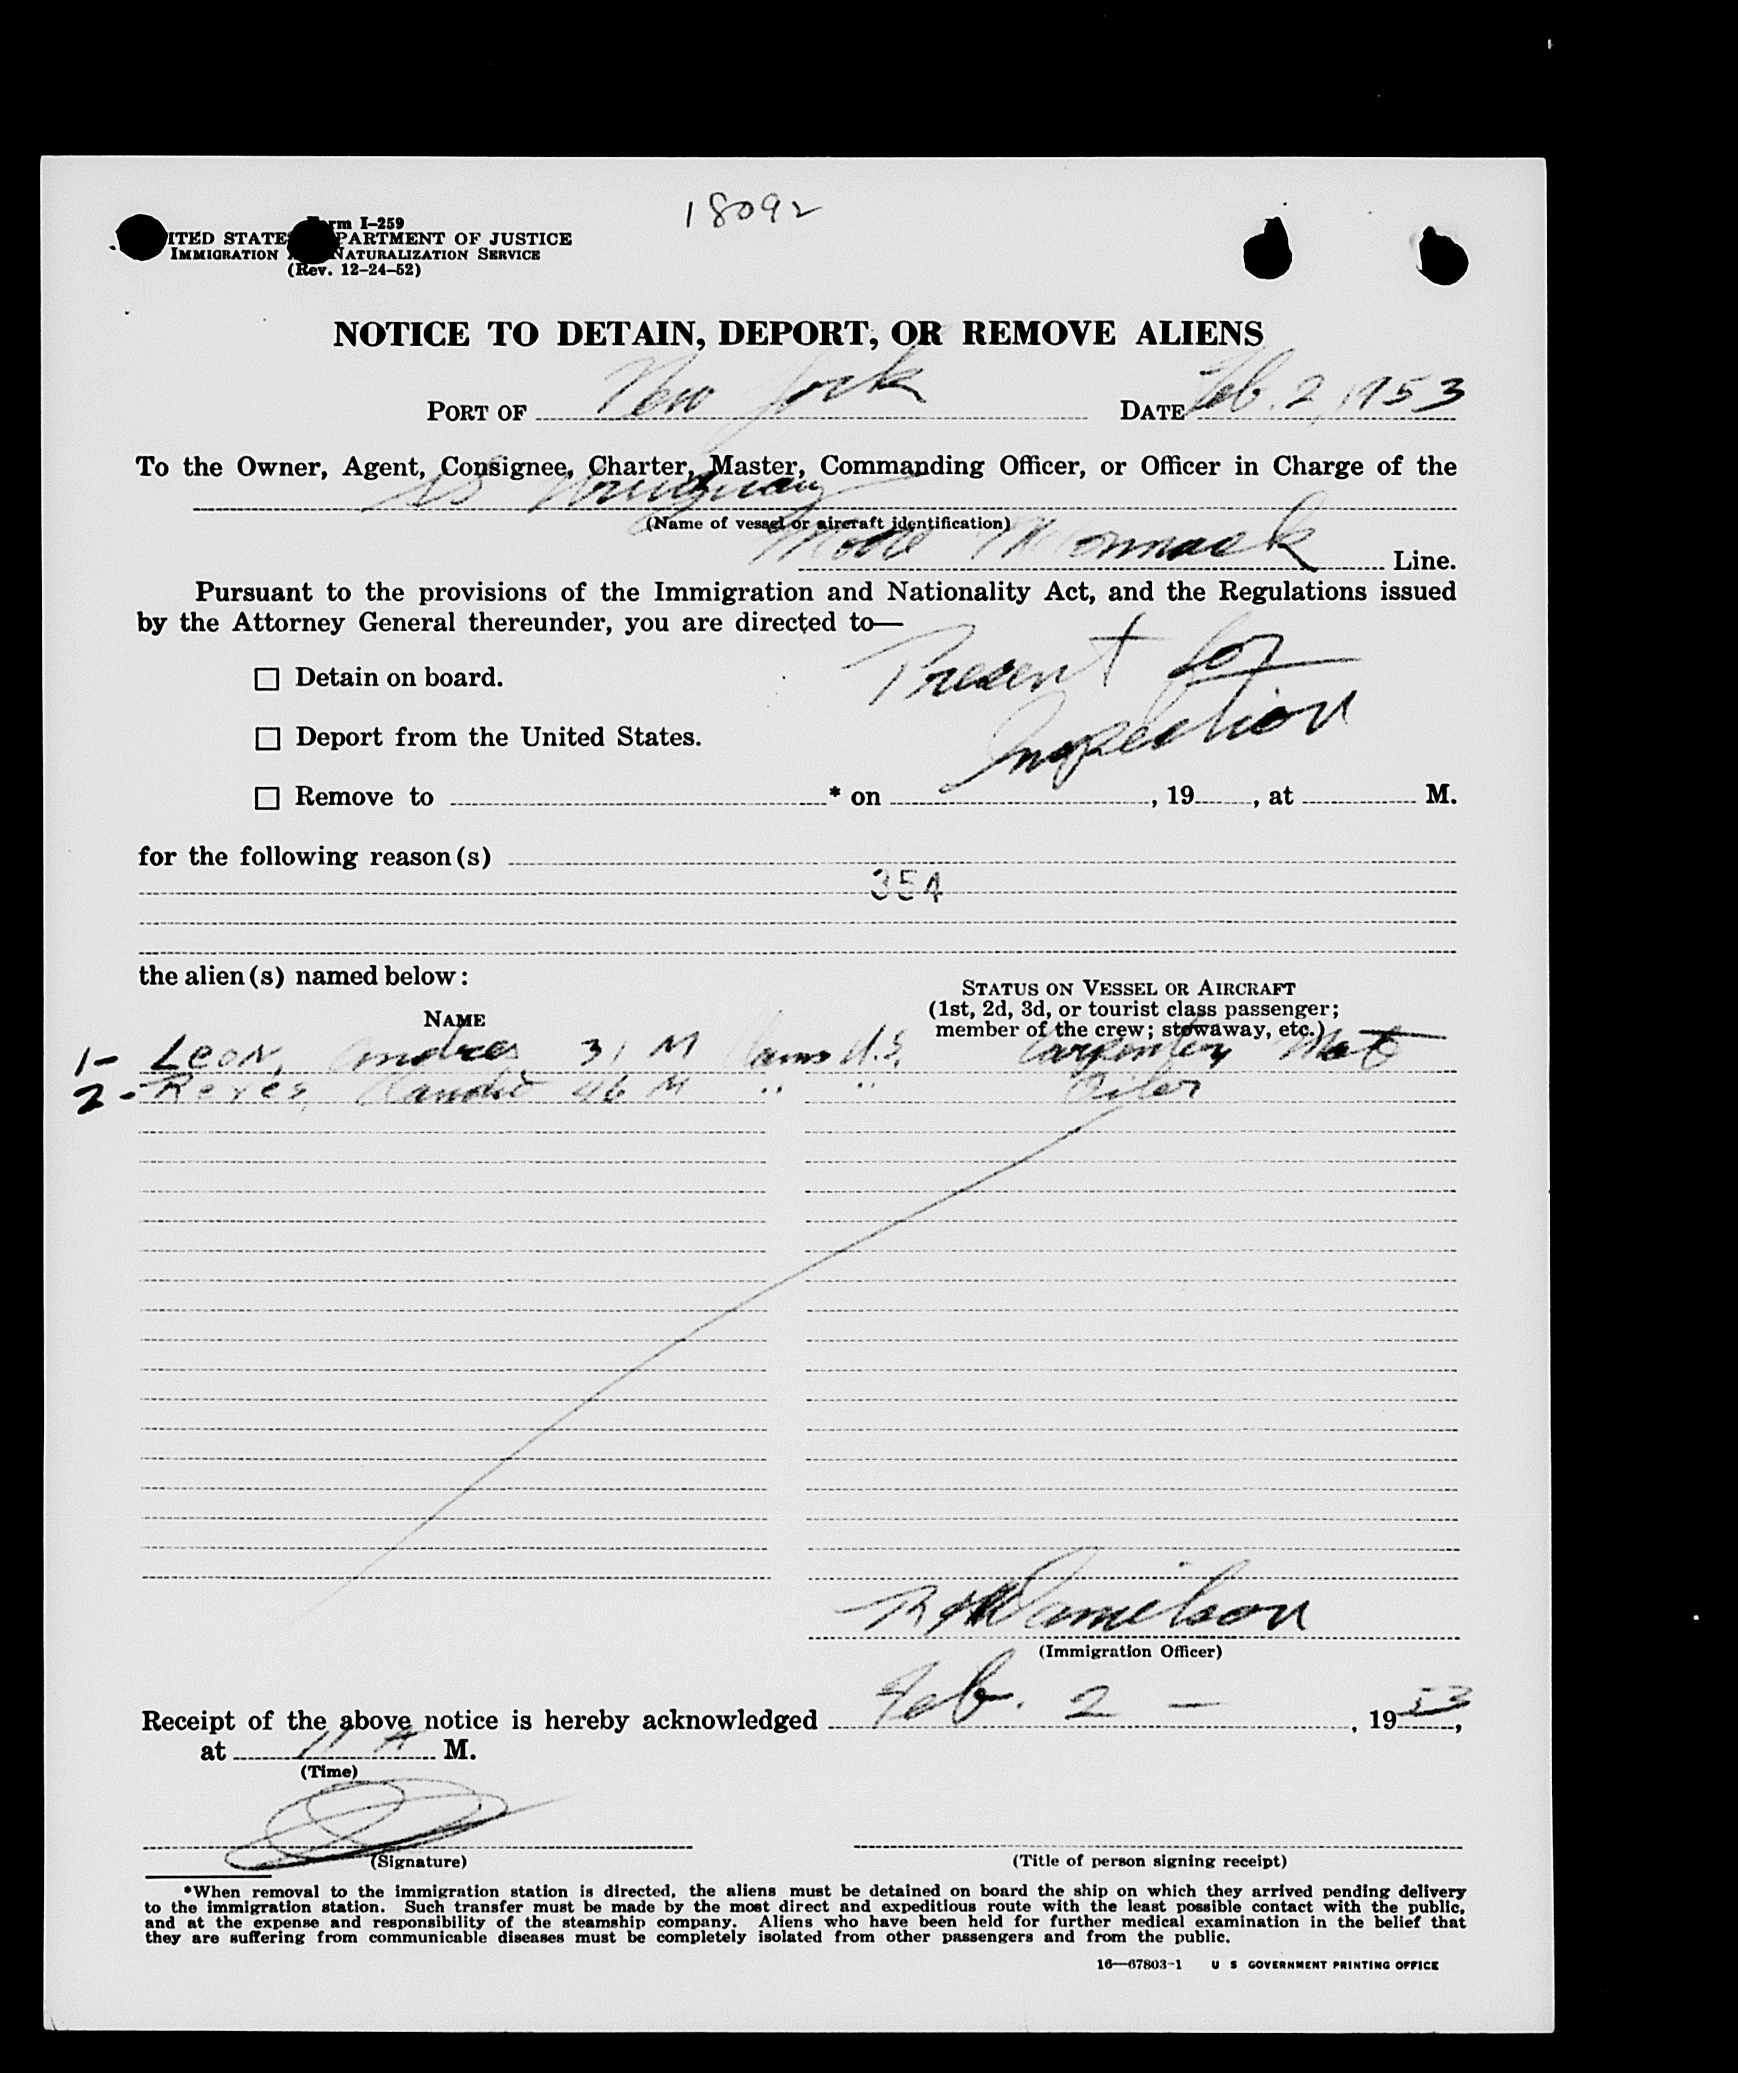 18092
Form I-259
UNITED STATES DEPARTMENT OF JUSTICE
IMMIGRATION AND NATURALIZATION SERVICE
(Rev. 12-24-52)
NOTICE TO DETAIN, DEPORT, OR REMOVE ALIENS
PORT OF New York DATE Feb. 2, 1953
To the Owner, Agent, Consignee, Charter, Master, Commanding Officer, or Officer in Charge of the
SS Uruguay
(Name of vessel or aircraft identification)
Moore McCormack Line.
Pursuant to the provisions of the Immigration and Nationality Act, and the Regulations issued
by the Attorney General thereunder, you are directed to—
Present for
☐ Detain on board.
Inspection
☐ Deport from the United States.
☐ Remove to * on , 19 , at M.
for the following reason(s)
354
the alien(s) named below:
STATUS ON VESSEL OR AIRCRAFT
(1st, 2d, 3d, or tourist class passenger;
NAME member of the crew; stowaway, etc.)
1- Leon, Andres 31 M U.S. Carpenter Mate
2- Reyes, 46 M " " Oiler
(Immigration Officer)
Receipt of the above notice is hereby acknowledged Feb. 2 - , 1953,
at 11 A M.
(Time)
(Signature) (Title of person signing receipt)
*When removal to the immigration station is directed, the aliens must be detained on board the ship on which they arrived pending delivery
to the immigration station. Such transfer must be made by the most direct and expeditious route with the least possible contact with the public,
and at the expense and responsibility of the steamship company. Aliens who have been held for further medical examination in the belief that
they are suffering from communicable diseases must be completely isolated from other passengers and from the public.
16—67803-1 U S GOVERNMENT PRINTING OFFICE